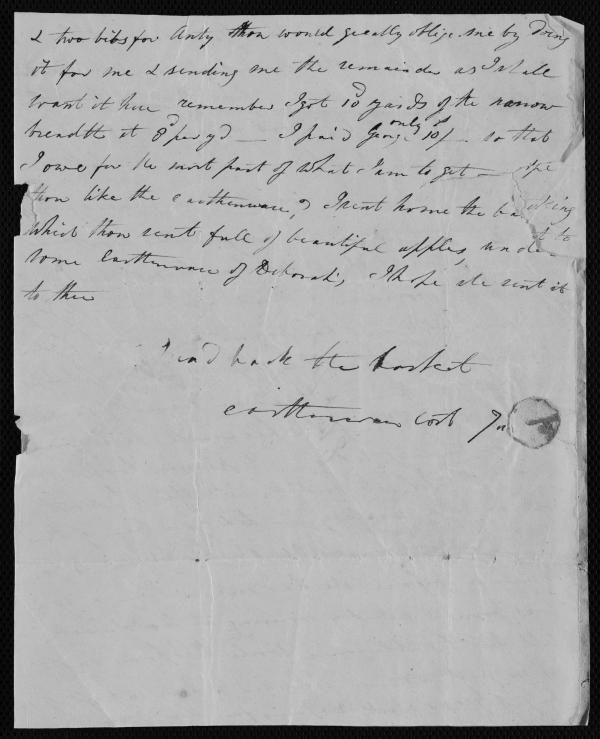 & two bibs for Anty thou would greatly oblige me by doing
it for me & sending me the remainder as I shall
want it here remember I got 10 yards of the narrow
breadth at 8d per yd — I paid George only 10/- so that
I owe for the most part of what I am to get —
thou like the earthenware, I sent home the
which thou sent full of beautiful apples, under
some Earthenware of Deborah's, I hope she sent it
to thee
send back the basket
earthenware cost